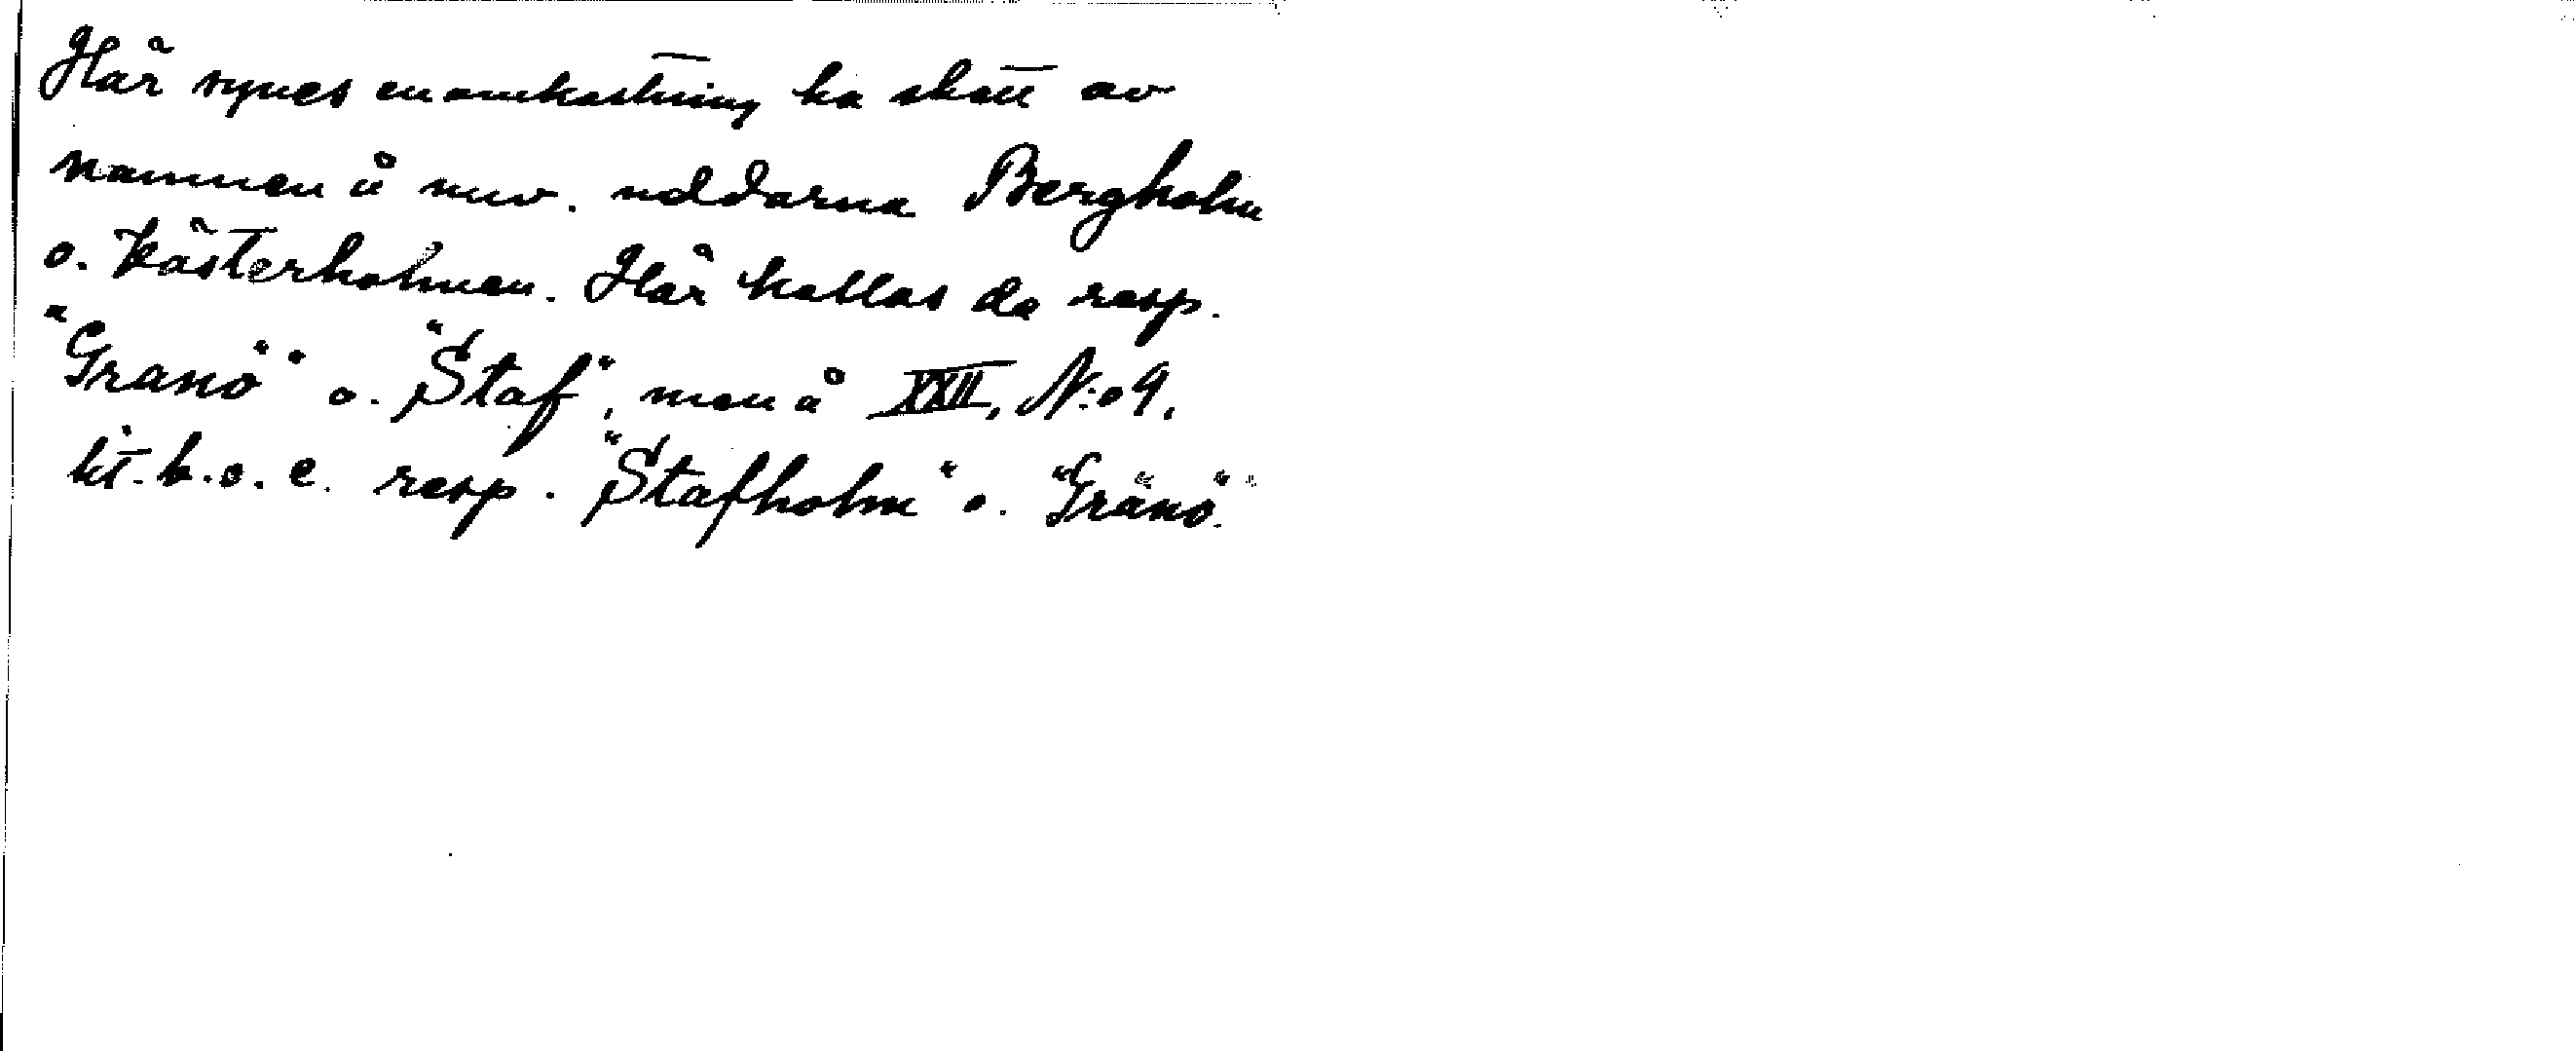 Här synes en omkastning ha skett av
namnen å nuv. uddarna Bergholm
o. Västerholmen. Här kallas de resp.
"Granö" o. "Staf", men å XXII, N:o 9.
lit. b. o. c. resp. "Stafholm" o. "Gränö".